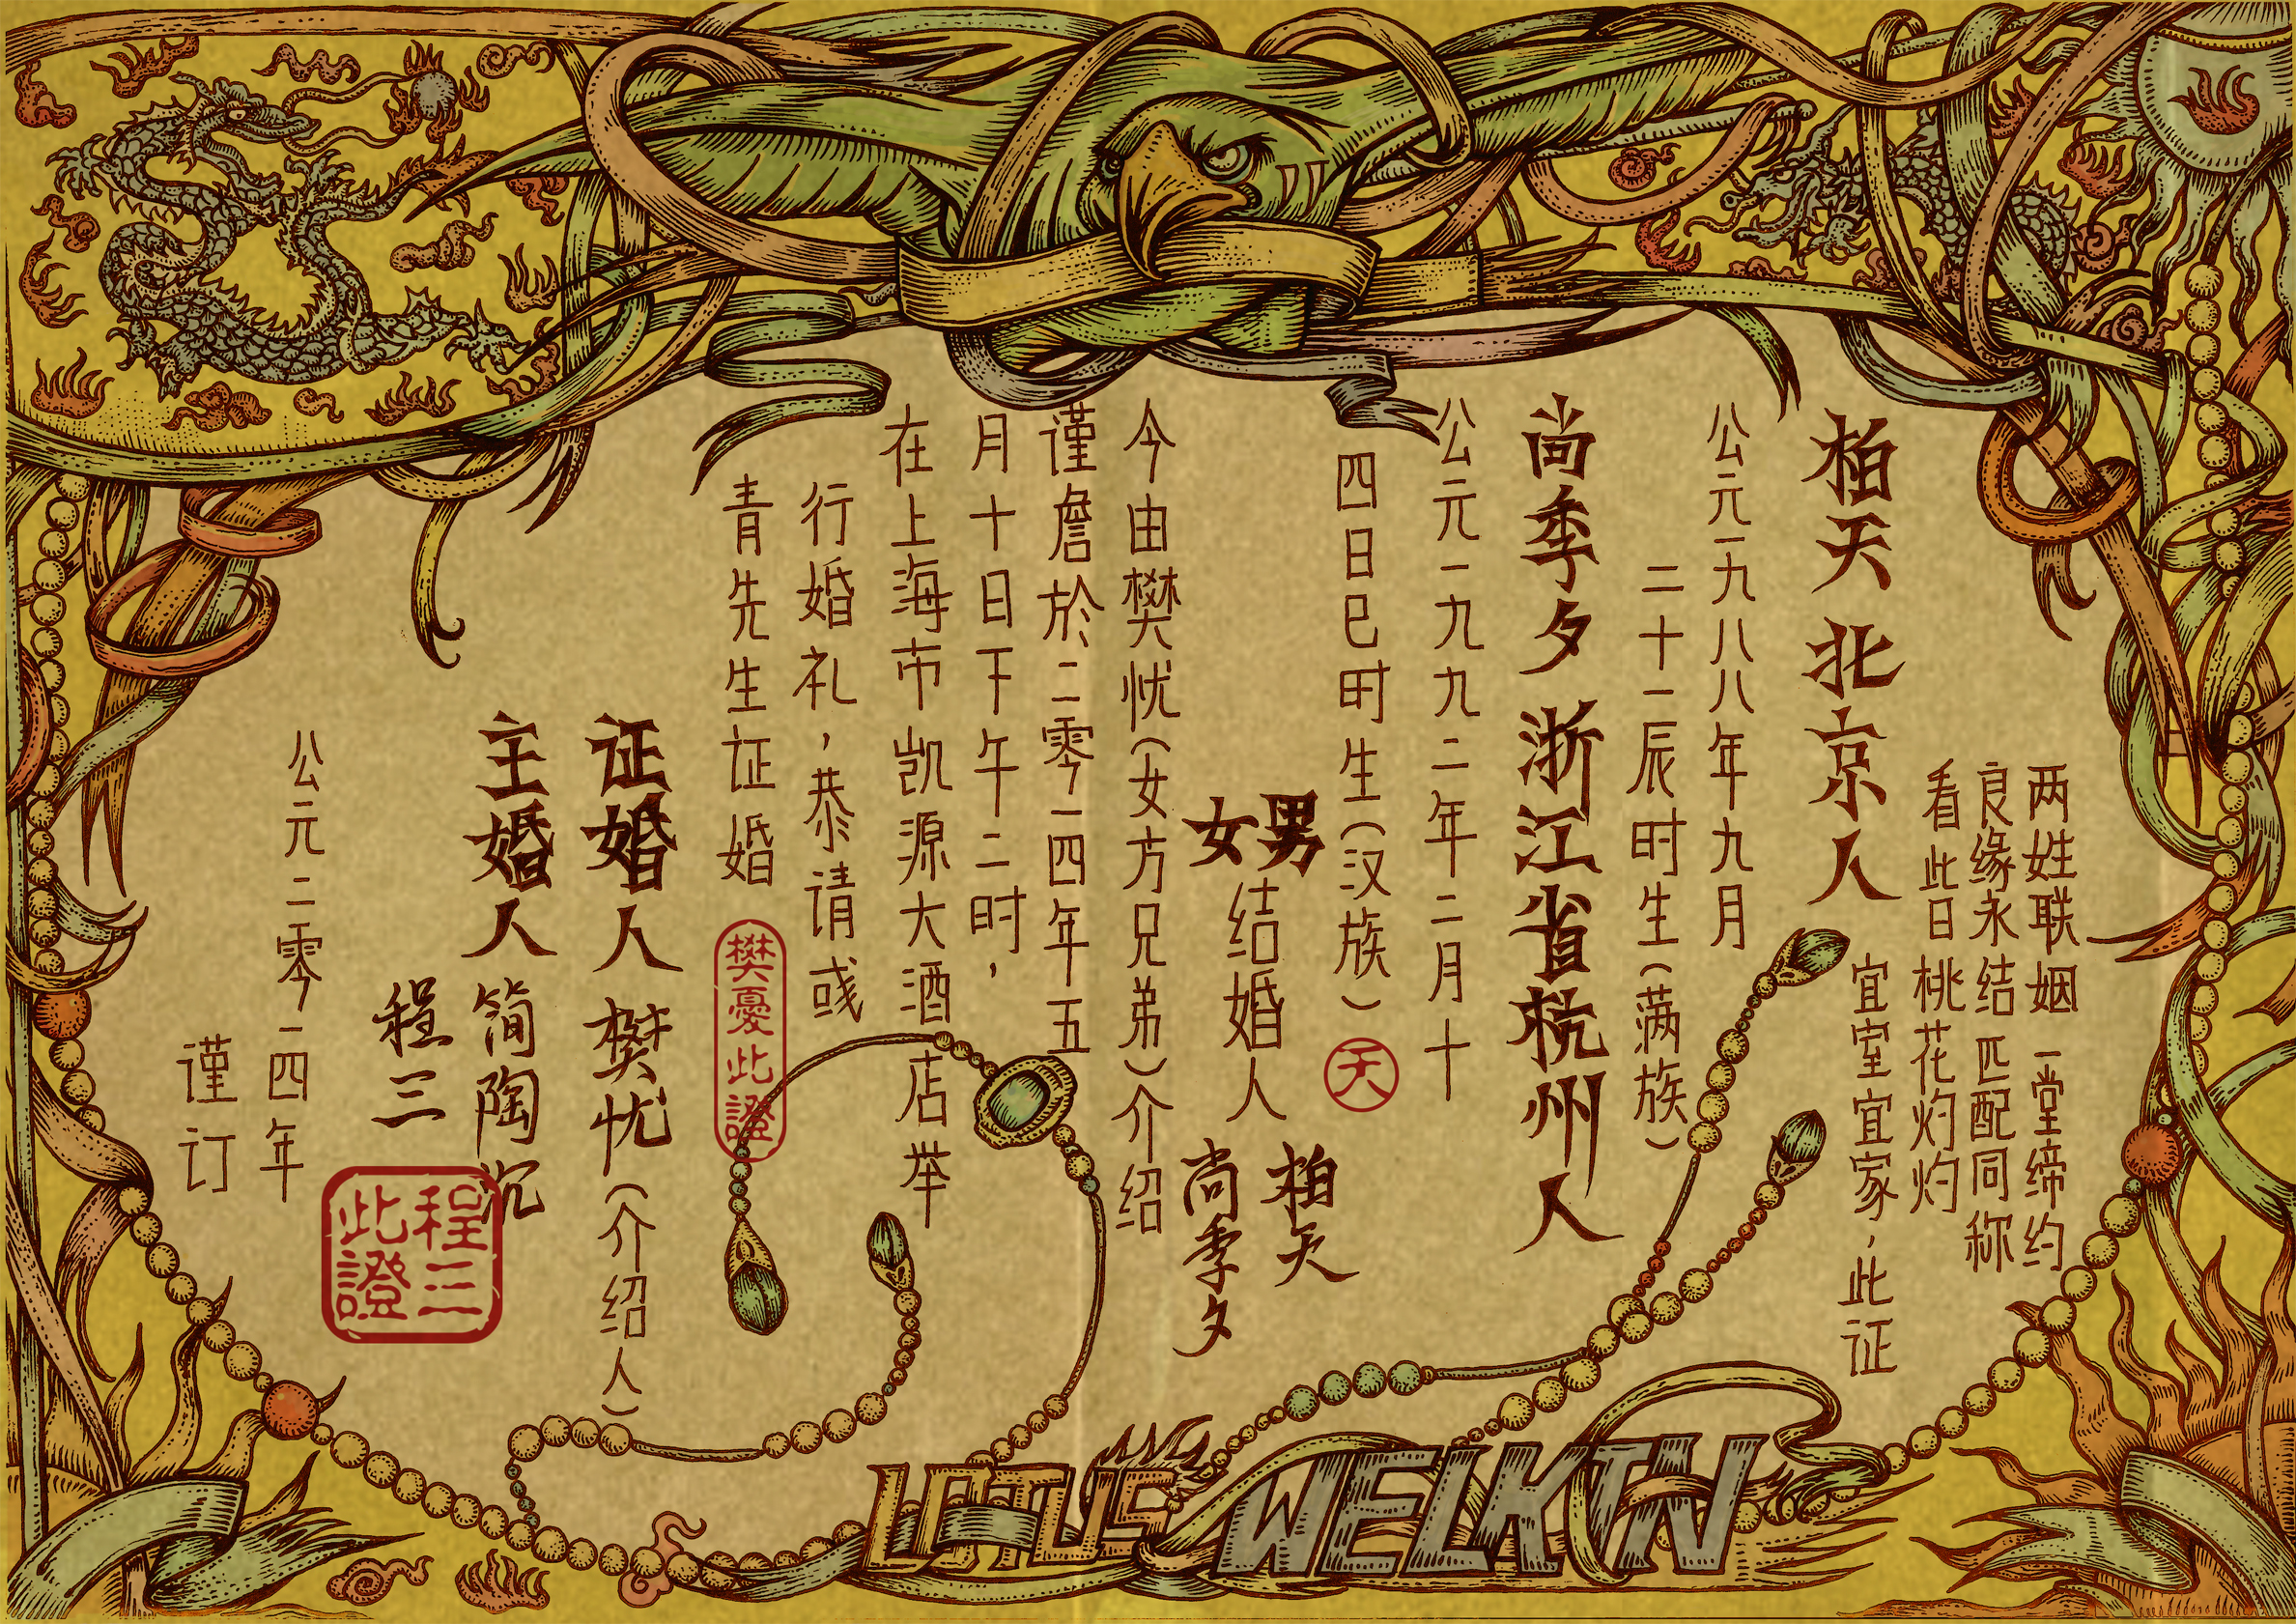 两姓联姻 一堂缔约
良缘永结 匹配同称
看此日桃花灼灼
宜室宜家，此证
柏天 北京人
公元一九八八年九月
二十二辰时生（满族）
尚季夕 浙江省杭州人
公元一九九二年二月十
四日巳时生（汉族）
天
男 女 结婚人 柏天
尚季夕
今由樊忧（女方兄弟）介绍
谨詹於二零一四年五
月十日下午二时，
在上海市凯源大酒店举
行婚礼，恭请彧
青先生证婚
樊憂此證
证婚人 樊忧（介绍人）
主婚人 简陶沉
程三
程三此證
公元二零一四年
谨订
LOTUS WELKIN